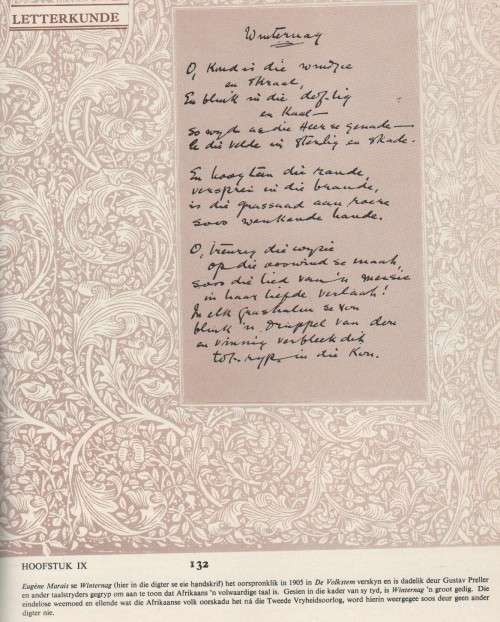 LETTERKUNDE
Winternag
O, Koud is die windjie
en skraal,
En blink in die dof-lig
en kaal —
so wyd as die Heer se genade —
lê die velde in sterlig en skade.
En hoog teen die rande,
versprei in die brande,
is die grassaad aan roere
soos wenkende hande.
O, treurig die wysie
op die ooswind se maat,
soos die lied van 'n meisie
in haar liefde verlaat!
In elk grashalm se vou
blink 'n druppel van dou
en vinnig verbleek dit
tot ryp in die kou.
HOOFSTUK IX
132
Eugène Marais se Winternag (hier in die digter se eie handskrif) het oorspronklik in 1905 in De Volkstem verskyn en is dadelik deur Gustav Preller
en ander taalstryders gegryp om aan te toon dat Afrikaans 'n volwaardige taal is. Gesien in die kader van sy tyd, is Winternag 'n groot gedig. Die
eindelose weemoed en ellende wat die Afrikaanse volk oorskadu het ná die Tweede Vryheidsoorlog, word hierin weergegee soos deur geen ander
digter nie.